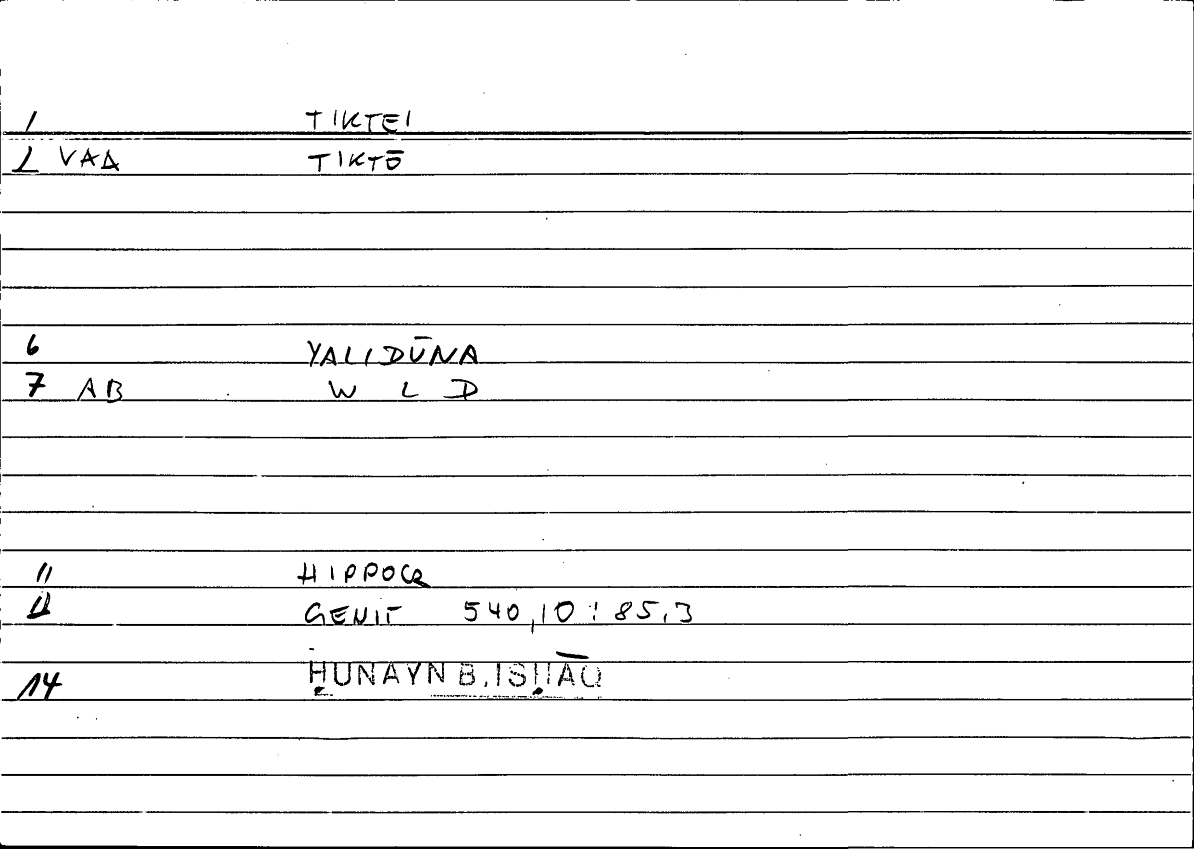 1 TIKTEI
2 VAA TIKTŌ
6 YALIDŪNA
7 AB W L D
11 HIPPOCR
12 GENIT 540,10 : 85,3
14 ḤUNAYN B. ISḤĀQ